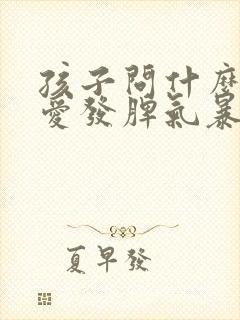 孩子問什麼
愛發脾氣暴
夏早發